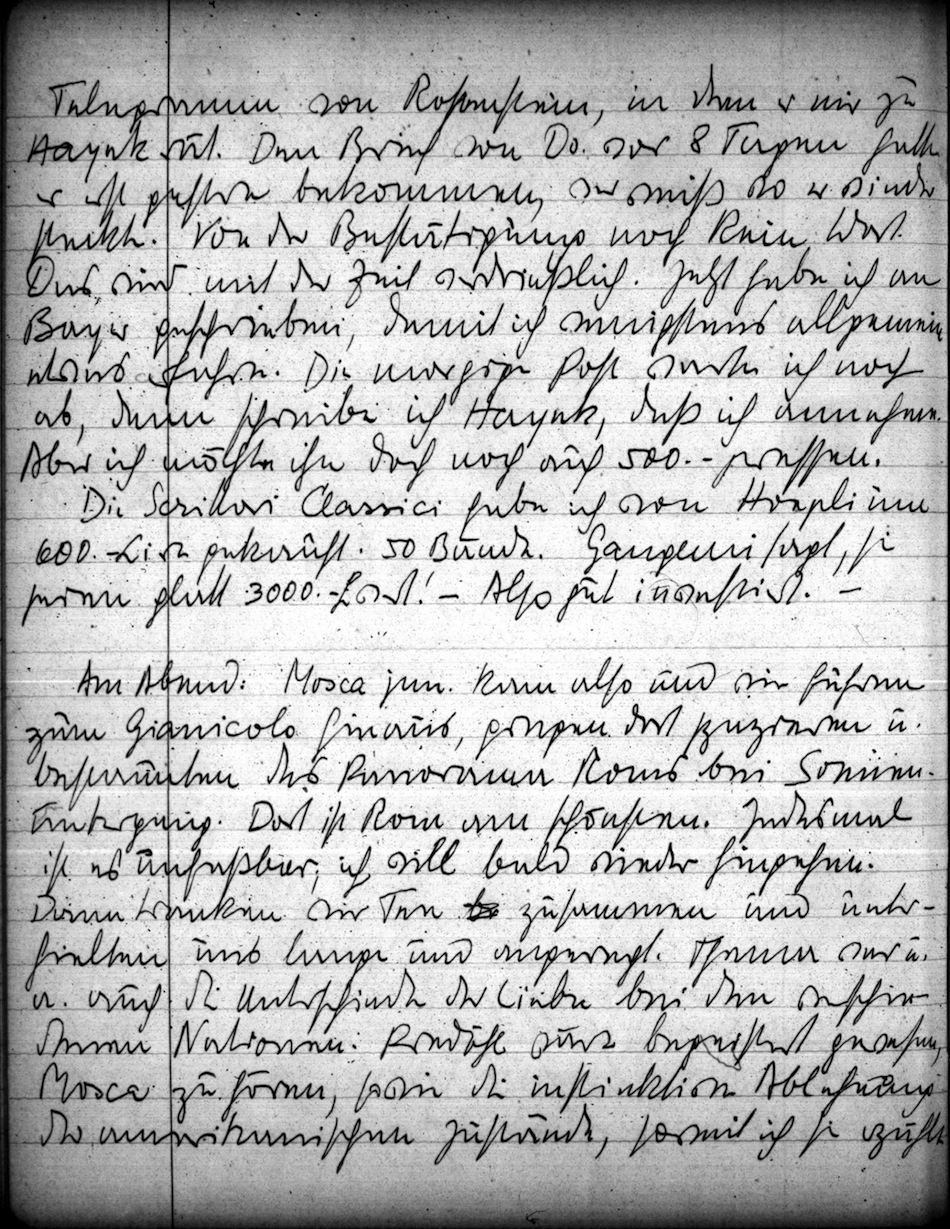 Telegramm von Rosenstein, in dem er mir zu
Hayek rät. Den Brief von Do. vor 8 Tagen hatte
er erst gestern bekommen, wer weiß wo er wieder
steckte. Von der Bestätigung noch kein Wort.
Das wird mit der Zeit verdrießlich. Jetzt habe ich an
Bayer geschrieben, damit ich wenigstens allgemein
etwas erfahre. Die morgige Post warte ich noch
ab, dann schreibe ich Hayek, daß ich annehme.
Aber ich möchte ihn doch noch auf 500.- pressen.
Die Scrittori Classici habe ich von Hoepli um
600.- Lire gekauft. 50 Bände. Gangemi sagt, sie
seien glatt 3000.- L wert! – Also gut investiert. –
Am Abend: Mosca jun. kam also und wir fuhren
zum Gianicolo hinaus, gingen dort spazieren u.
bestaunten das Panorama Roms bei Sonnen-
untergang. Dort ist Rom am schönsten. Jedesmal
ist es unfaßbar; ich will bald wieder hingehen.
Dann tranken wir Tee zusammen und unter-
hielten uns lange und angeregt. Thema war u.
a. auch die Unterschiede der Liebe bei den verschie-
denen Nationen. Kredöhl wäre begeistert gewesen,
Mosca zu hören, sowie die instinktive Ablehnung
der amerikanischen Zustände, soweit ich sie erzählt